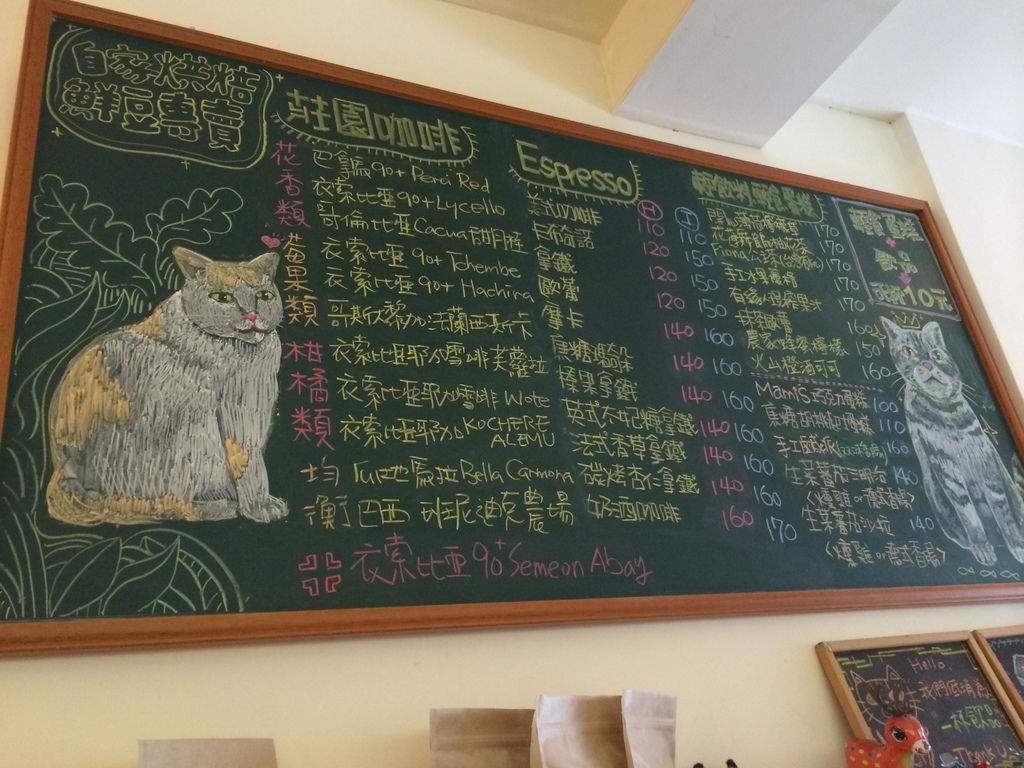 自家烘焙
鮮豆專賣
莊園咖啡
花香類
巴拿馬90+ Perci Red
衣索比亞90+Lycello
哥倫比亞Cacua甜月莊
莓果類
衣索比亞90+ Tchembe
衣索比亞90+ Hachira
哥斯大黎加法蘭西斯卡
柑橘類
衣索比亞耶加雪啡芙蘿拉
衣索比亞耶加雪啡 Wote
衣索比亞耶加KOCHERE ALEMU
均衡
瓜地馬拉Bella Carmona
巴西 班尼迪克農場
衣索比亞 90+ Semeon Abay
Espresso
H I
美式咖啡 110 110
卡布奇諾 120 150
拿鐵 120 150
歐蕾 120 150
摩卡 140 160
焦糖瑪奇朵 140 160
榛果拿鐵 140 160
英式太妃糖拿鐵 140 160
法式香草拿鐵 140 160
碳烤杏仁拿鐵 140 160
好酒咖啡 160 170
170
170
170
手工水果
170
160
150
火山橙酒可可 160
Mami's 巧克力蛋糕 100
焦糖胡桃 110
手工鹹派 160
生菜蕃茄三明治 140
(燻雞 or 德式香腸)
生菜蕃茄沙拉 140
(燻雞 or 德式香腸)
輕食 蛋糕
+
飲品
10元
Hello.
我們低消為
一杯飲品
Thank U.